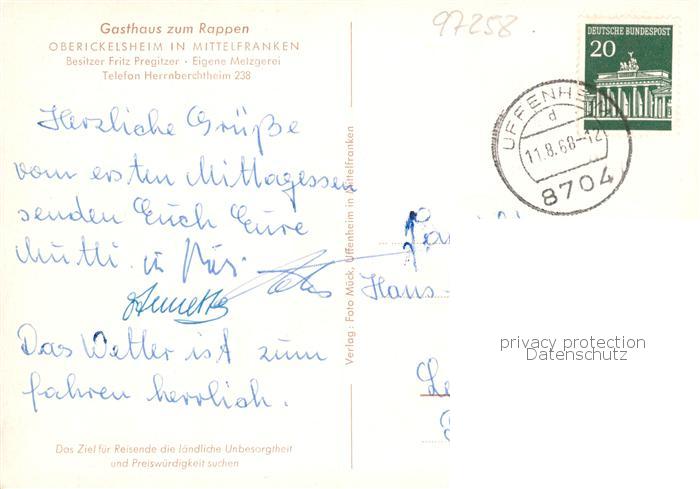 Gasthaus zum Rappen
OBERICKELSHEIM IN MITTELFRANKEN
Besitzer Fritz Pregitzer · Eigene Metzgerei
Telefon Herrnberchtheim 238
97258
DEUTSCHE BUNDESPOST
20
UFFENHEIM
d
11.8.68-12
8704
Herzliche Grüße
vom ersten Mittagessen
senden Euch Eure
Mutti. u
Annette
Das Wetter ist zum
fahren herrlich.
Verlag: Foto Mück, Uffenheim in Mittelfranken
Hans-
privacy protection
Datenschutz
Das Ziel für Reisende die ländliche Unbesorgtheit
und Preiswürdigkeit suchen